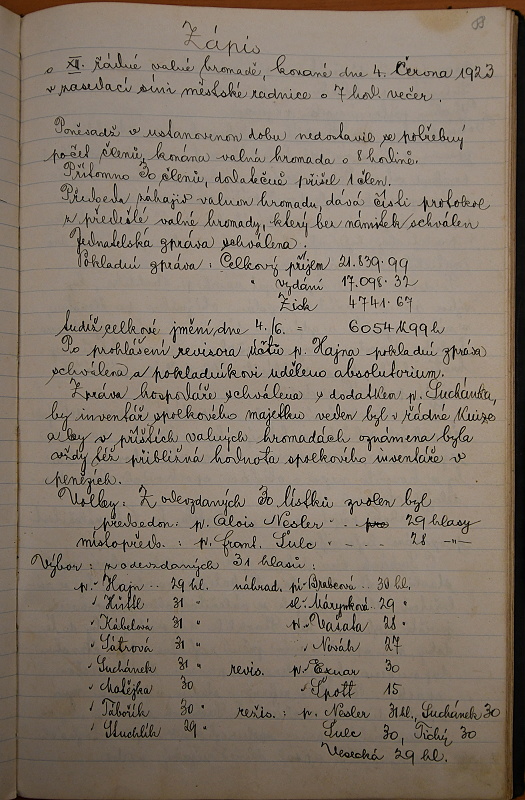 53
Zápis
o XII. řádné valné hromadě, konané dne 4. Června 1923
v zasedací síni městské radnice o 7 hod. večer.
Poněvadž v ustanovenou dobu nedostavil se potřebný
počet členů, konána valná hromada o 8 hodině.
Přítomno 30 členů, dodatečně přišel 1 člen.
Předseda zahájiv valnou hromadu, dává čísti protokol
z předešlé valné hromady, který bez námitek schválen
Jednatelská zpráva schválena.
Pokladní zpráva: Celkový příjem 21.839.99
" vydání 17.098.32
Zisk 4741.67
tudíž celkové jmění dne 4./6. = 6054 K 99 h
Po prohlášení revisora účtů p. Hajna pokladní zpráva
schválena a pokladníkovi uděleno absolutorium.
Zpráva hospodáře schválena s dodatkem p. Suchánka,
by inventář spolkového majetku veden byl v řádné knize
a by v příštích valných hromadách oznámena byla
vždy též přibližná hodnota spolkového inventáře v
penězích.
Volby: Z odevzdaných 30 lístků zvolen byl
předsedou: p. Alois Nesler .. 29 hlasy
místopředs.: p. Frant. Šulc - . . 28 -"-
Výbor: z odevzdaných 31 hlasů:
p. Hajn .. 29 hl. náhrad. pí Brabcová .. 30 hl.
" Hüttl 31 " sl. Márynková 29 "
" Kábelová 31 " p. Vašata 28 "
" Šátrová 31 " " Novák 27
" Suchánek 31 " revis. p. Exnar 30
" Matějka 30 " Špott 15
" Tábořík 30 " režis.: p. Nesler 31 hl., Suchánek 30
" Stuchlík 29 " Šulc 30, Tichý 30
Vesecká 29 hl.